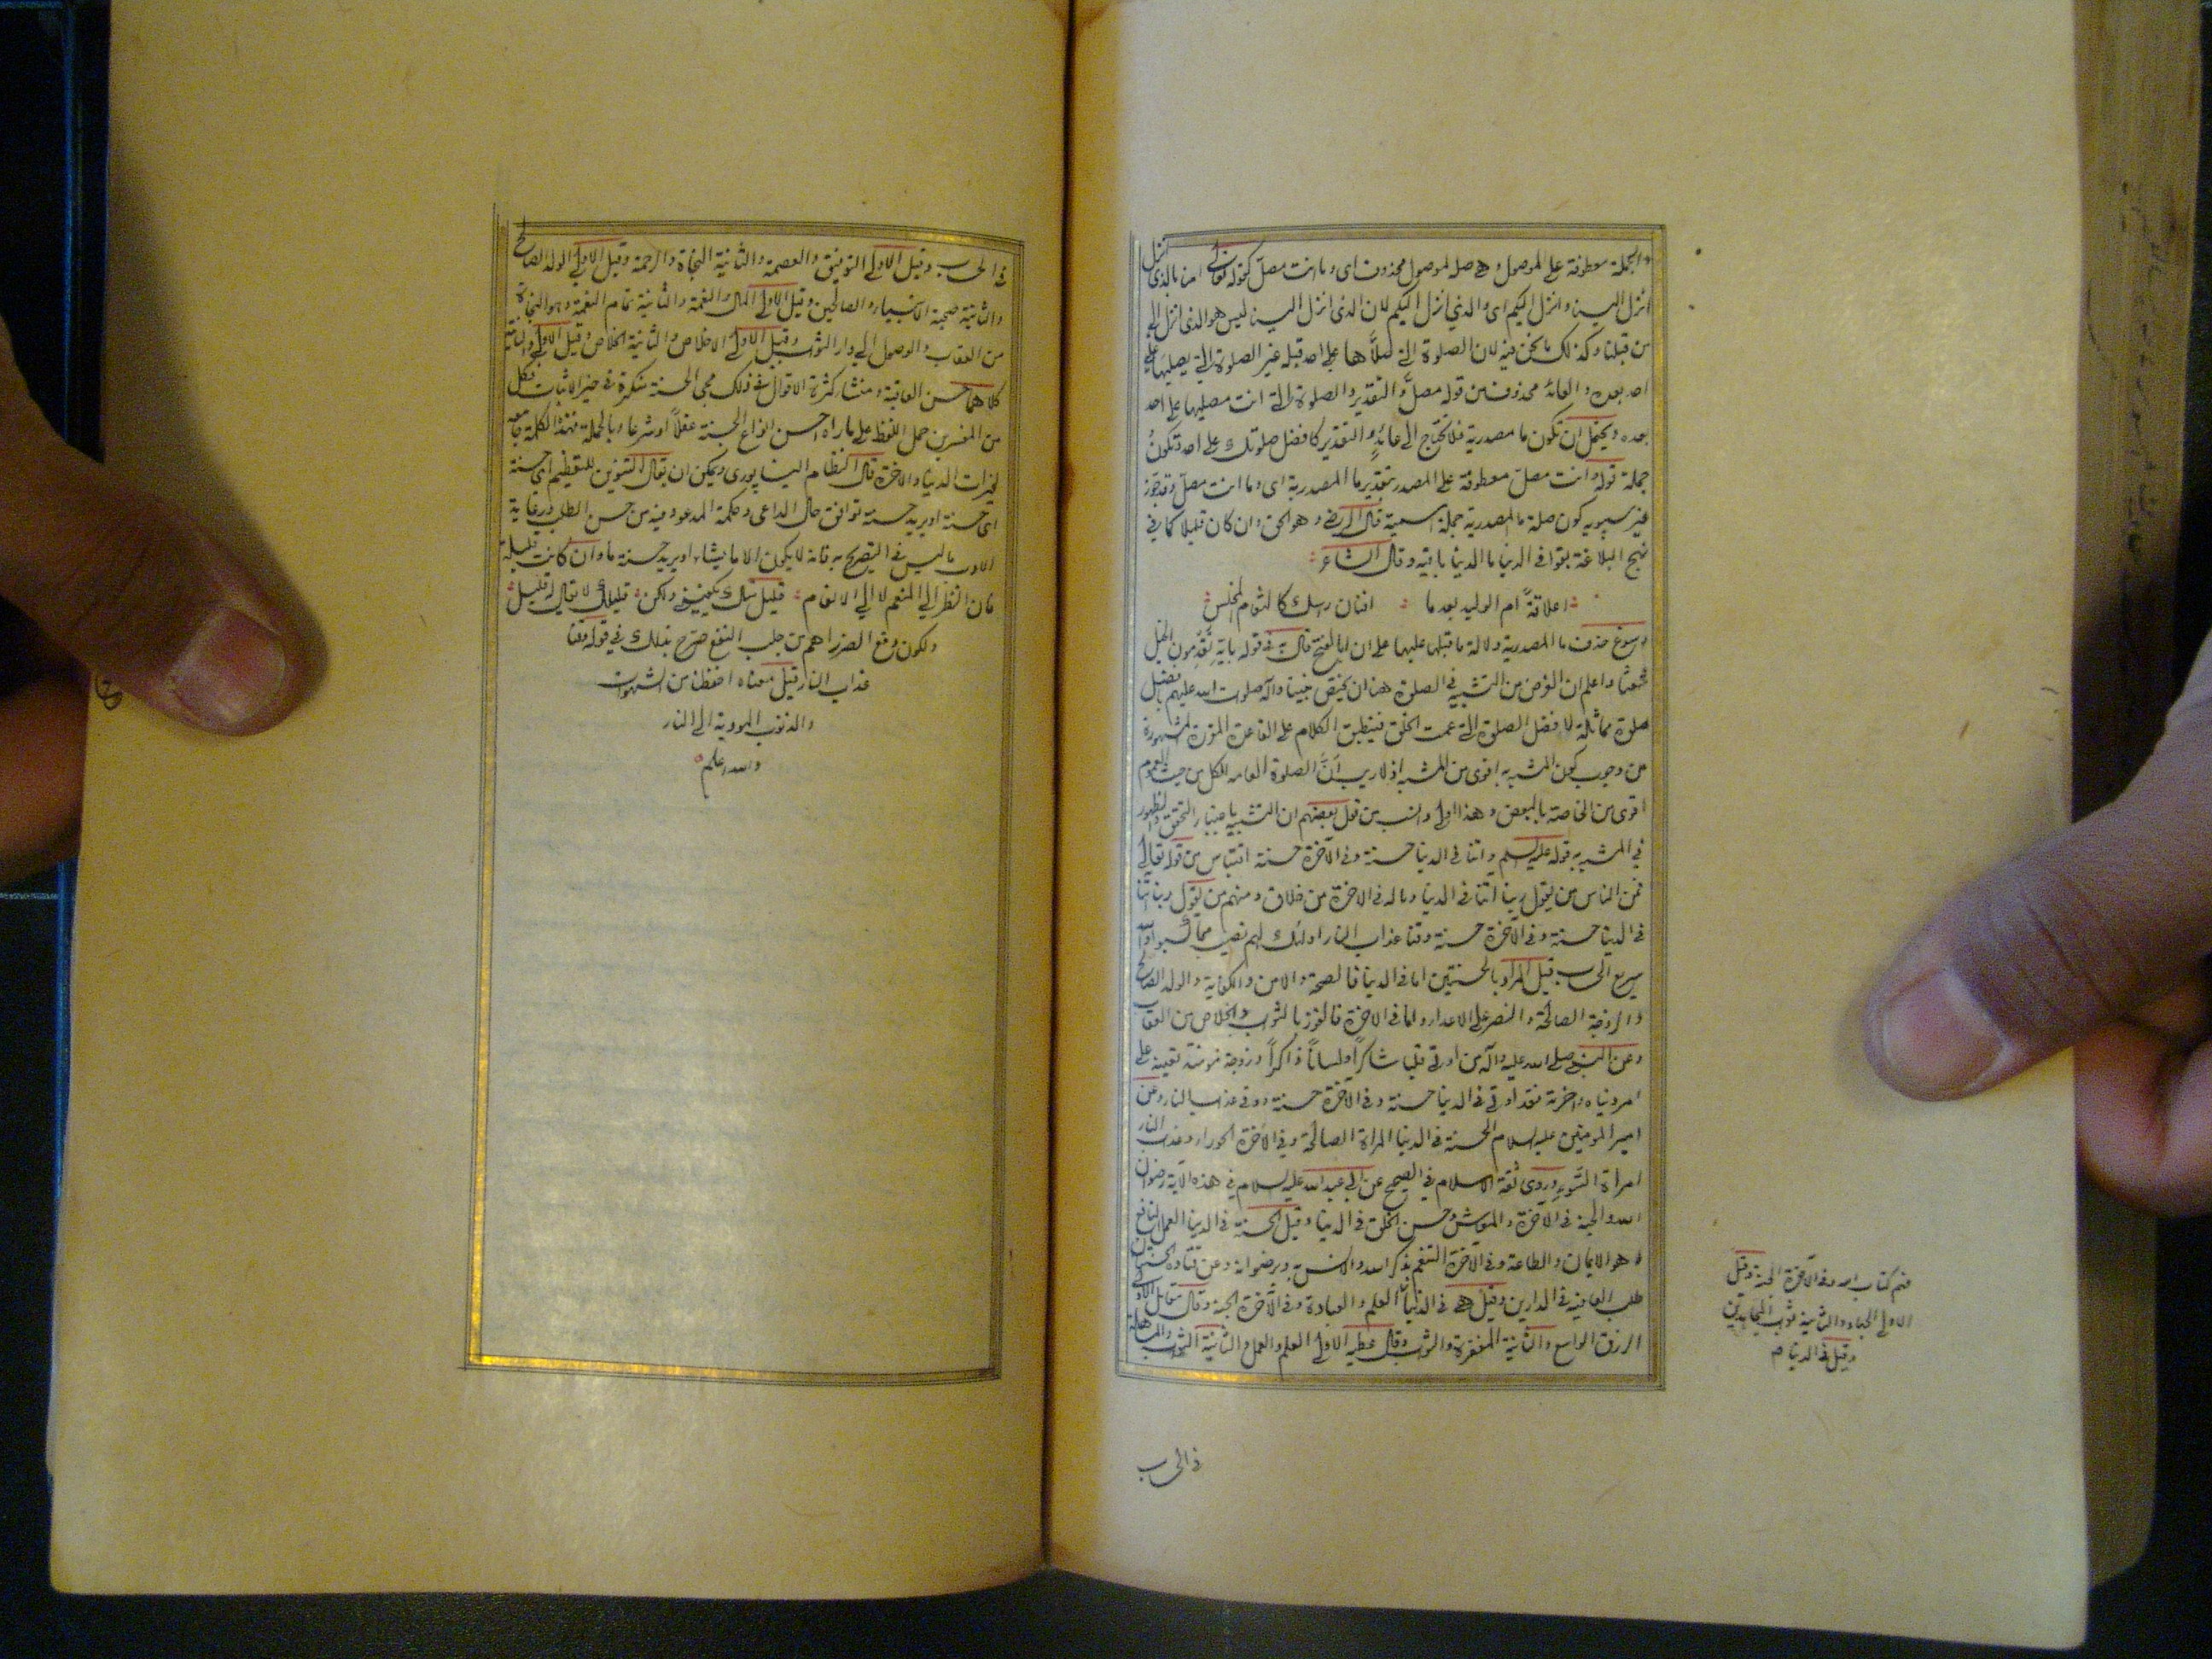 والجملة معطوفة على الموصول وهي صلة لموصول محذوف اى وما انت مصلّ كقوله تعالى امنا بالذى انزل
انزل الينا وانزل اليكم اى والذي انزل اليكم لان الذى انزل الينا ليس هو الذى انزل الى
من قبلنا وكذلك ما نحن فيه لان الصلوة التي صلاها على احد قبله غير الصلوة التي يصليها على
احد بعده والعائد محذوف من قوله مصلّ والتقدير والصلوة التى انت مصليها على احد
بعده ويحتمل ان تكون ما مصدرية فلا تحتاج الى عائدٍ والتقدير كافضل صلوتك على احد وتكون
جملة قوله وانت مصلّ معطوفة على المصدر بتقدير ما المصدرية اى وما انت مصلّ وقد جوز
غير سيبويه كون صلة ما المصدرية جملة اسمية قال الرضى وهو الحق وان كان قليلا كما في
نهج البلاغة بقوا في الدنيا ما الدنيا باقية وقال الشاعر
اعلاقةً ام الوليد بعد ما افنان راسك كالثغام المخلس
وسوغ حذف ما المصدرية دلالة ما قبلها عليها على ان ابا الفتح قال به في قوله باية تقدمون الخيل
شعثا واعلم ان الغرض من التشبيه في الصلوة هنا ان يختص نبينا وآله صلوات الله عليهم بافضل
صلوة مماثلة لافضل الصلوة التي عمت الخلق فينطبق الكلام على القاعدة المقررة المشهورة
من وجوب كون المشبه به اقوى من المشبه اذ لا ريب انّ الصلوة العامه للكل من حيث العموم
اقوى من الخاصة بالبعض وهذا اولى وانسب من قول بعضهم ان التشبيه باعتبار التحقق والظهور
في المشبه به قوله عليه السلم واتنا في الدنيا حسنة وفي الآخرة حسنة اقتباس من قوله تعالى
فمن الناس من يقول ربنا اتنا في الدنيا وماله في الاخرة من خلاق ومنهم من يقول ربنا اتنا
في الدنيا حسنة وفي الآخرة حسنة وقنا عذاب النار اولئك لهم نصيب مما كسبوا والله
سريع الحساب قيل المراد بالحسنتين اما في الدنيا فالصحة والامن والكفاية والولد الصالح
والزوجة الصالحة والنصر على الاعداء واما في الاخرة فالفوز بالثواب والخلاص من العقاب
وعن النبي صلى الله عليه وآله من اوتي قلبا شاكراً ولساناً ذاكراً وزوجة مؤمنة تعينه على
امر دنياه واخرته فقد اوتي في الدنيا حسنة وفي الآخرة حسنة ووقي عذاب النار وعن
امير المومنين عليه السلام الحسنة في الدنيا المراة الصالحة وفي الآخرة الحوراء وعذاب النار
امراة السوء وروى ثقة الاسلام في الصحيح عن ابي عبد الله عليه السلام في هذه الآية رضوان
الله والجنة في الآخرة والمعاش وحسن الخلق في الدنيا وقيل الحسنة في الدنيا العمل النافع
وهو الايمان والطاعة وفي الآخرة التنعم بذكر الله والانس به وبرضوانه وعن قتادة الحسنتان
طلب العافية في الدارين وقيل هي في الدنيا العلم والعبادة وفي الآخرة الجنة وقال مقاتل الاولى
الرزق الواسع والثانية المغفرة والثواب وقال عطيه الاولى العلم والعمل والثانية الثواب والمساهلة
فهم كتاب الله وفي الآخرة الجنة وقيل
الاولى الجهاد والثانية ثواب المجاهدين
وقيل في الدنيا م
في الحساب
في الحساب وقيل الاولى التوفيق والعصمة والثانية النجاة والرحمة وقيل الاولى الولد الصالح
والثانية صحبة الانبياء والصالحين وقيل الاولى المال والنعمة والثانية تمام النعمة وهو النجاة
من العقاب والوصول الى دار الثواب وقيل الاولى الاخلاص والثانية الخلاص وقيل الاولى والثانية
كلاهما حسن العاقبة ومنشا كثرة الاقوال في ذلك مجى الحسنة منكرة في حيز الاثبات فكل
من المفسرين حمل اللفظ على ما راه احسن انواع الحسنة عقلاً او شرعا وبالجملة فهذه الكلمة جامعه
لخيرات الدنيا والاخرة قال النظام النيسابورى ويمكن ان يقال التنوين للتعظيم اى حسنة
اى حسنة او يريد حسنة توافق حال الداعى وحكمة المدعو وفيه من حسن الطلب ورعاية
الادب ما ليس في التصريح به فانه لا يكون الا ما يشاء او يريد حسنة ما وان كانت قليلة
فان النظر الى المنعم لا الى الانعام قليل منك يكفيني ولكن قليلك لا يقال له قليل
ولكون دفع الضرر اهم من جلب النفع صرح بذلك في قوله وقنا
عذاب النار قيل معناه احفظنا من الشهوات
والذنوب المودية الى النار
والله اعلم